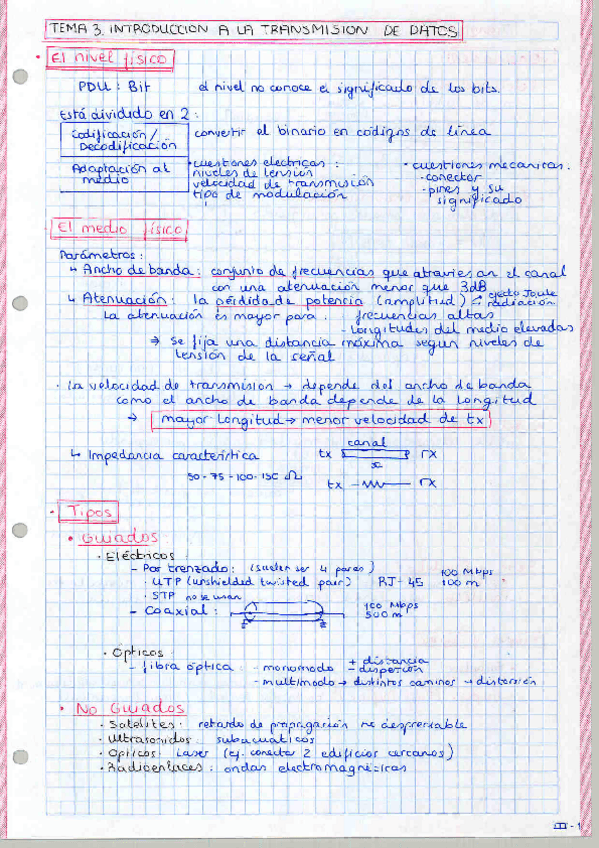 TEMA 3. INTRODUCCION A LA TRANSMISION DE DATOS
· El nivel físico
PDU : Bit el nivel no conoce el significado de los bits.
Está dividido en 2 :
Codificación / Decodificación convertir el binario en códigos de línea
Adaptación al medio
· cuestiones electricas :
niveles de tensión
velocidad de transmisión
tipo de modulación
· cuestiones mecanicas.
· conector
· pines y su significado
El medio físico
Parámetros :
↳ Ancho de banda : conjunto de frecuencias que atraviesan el canal
con una atenuación menor que 3dB
↳ Atenuación : la pérdida de potencia (amplitud) efecto Joule
radiación
La atenuación es mayor para : frecuencias altas
- longitudes del medio elevadas
→ Se fija una distancia máxima segun niveles de
tensión de la señal
· la velocidad de transmision → depende del ancho de banda
como el ancho de banda depende de la longitud
→ mayor longitud → menor velocidad de tx
↳ Impedancia característica
50 - 75 - 100 - 150 Ω
canal
tx rx
tx rx
· Tipos
· Guiados
· Eléctricos
- Par trenzado : (suelen ser 4 pares)
· UTP (unshielded twisted pair) RJ-45 100 Mbps
100 m
· STP no se usan
- Coaxial : 100 Mbps
500 m
· Opticos
- fibra óptica : - monomodo + distancia
- dispersión
- multimodo → distintos caminos → distorsión
· No Guiados
· Satelites : retardo de propagación no despreciable
· Ultrasonidos subacuaticos
· Opticos : Laser (ej. conectar 2 edificios cercanos)
· Radioenlaces : ondas electromagnéticas
III - 1